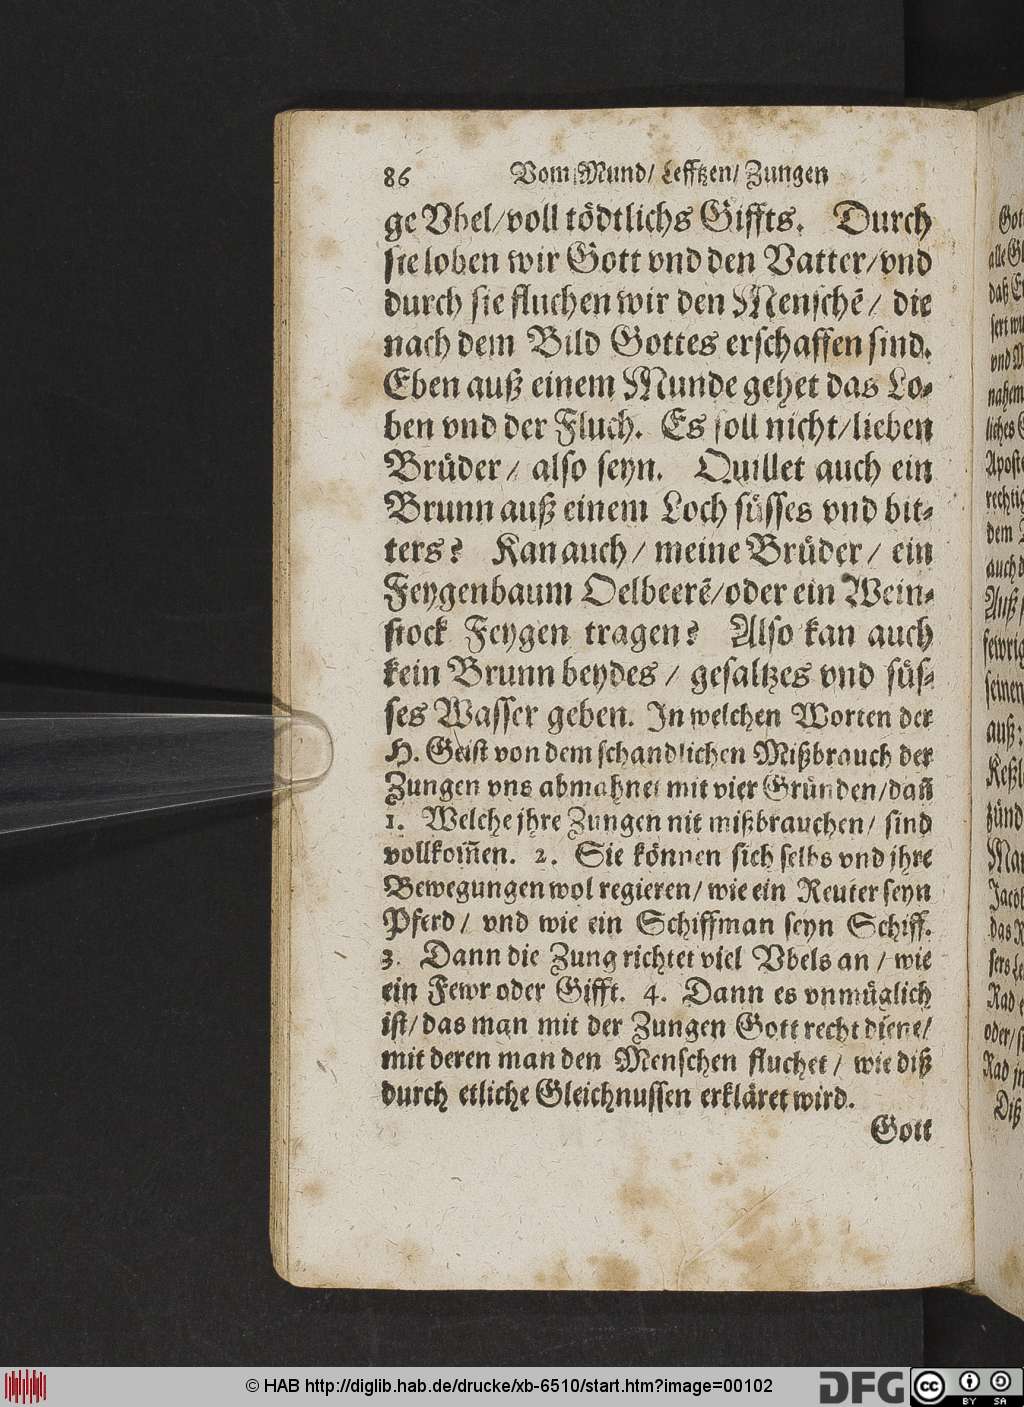 86 Vom Mund/ Lefftzen/ Zungen
ge Vbel/ voll tödtlichs Giffts. Durch
sie loben wir Gott vnd den Vatter/ vnd
durch sie fluchen wir den Menschē/ die
nach dem Bild Gottes erschaffen sind.
Eben auß einem Munde gehet das Lo-
ben vnd der Fluch. Es soll nicht/ lieben
Brüder/ also seyn. Quillet auch ein
Brunn auß einem Loch süsses vnd bit-
ters? Kan auch/ meine Brüder/ ein
Feygenbaum Oelbeerē/ oder ein Wein-
stock Feygen tragen? Also kan auch
kein Brunn beydes/ gesaltzes vnd süs-
ses Wasser geben. In welchen Worten der
H. Geist von dem schandlichen Mißbrauch der
Zungen vns abmahnet mit vier Gründen/ dañ
1. Welche jhre Zungen nit mißbrauchen/ sind
vollkom̃en. 2. Sie können sich selbs vnd jhre
Bewegungen wol regieren/ wie ein Reuter seyn
Pferd/ vnd wie ein Schiffman seyn Schiff.
3. Dann die Zung richtet viel Vbels an/ wie
ein Fewr oder Gifft. 4. Dann es vnmüglich
ist/ das man mit der Zungen Gott recht diene/
mit deren man den Menschen fluchet/ wie diß
durch etliche Gleichnussen erkläret wird.
Gott
Gott
alle
daß
vnd
auch
Auß
seinen
auß
das
Rad
oder/
Rad
Diß
© HAB http://diglib.hab.de/drucke/xb-6510/start.htm?image=00102
DFG
cc BY SA